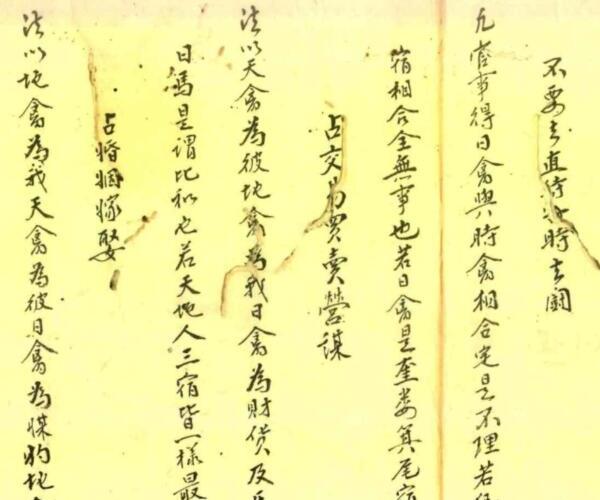 不要去直待時去鬪
凡官事得日禽與時禽相合定是不理若
宿相合全無事也若日禽是奎娄箕尾宿
占交易買賣營謀
法以天禽為彼地禽為我日禽為財貨及
日馬是謂比和也若天地人三宿皆一樣最
占婚姻嫁娶
法以地禽為我天禽為彼日禽為媒妁地